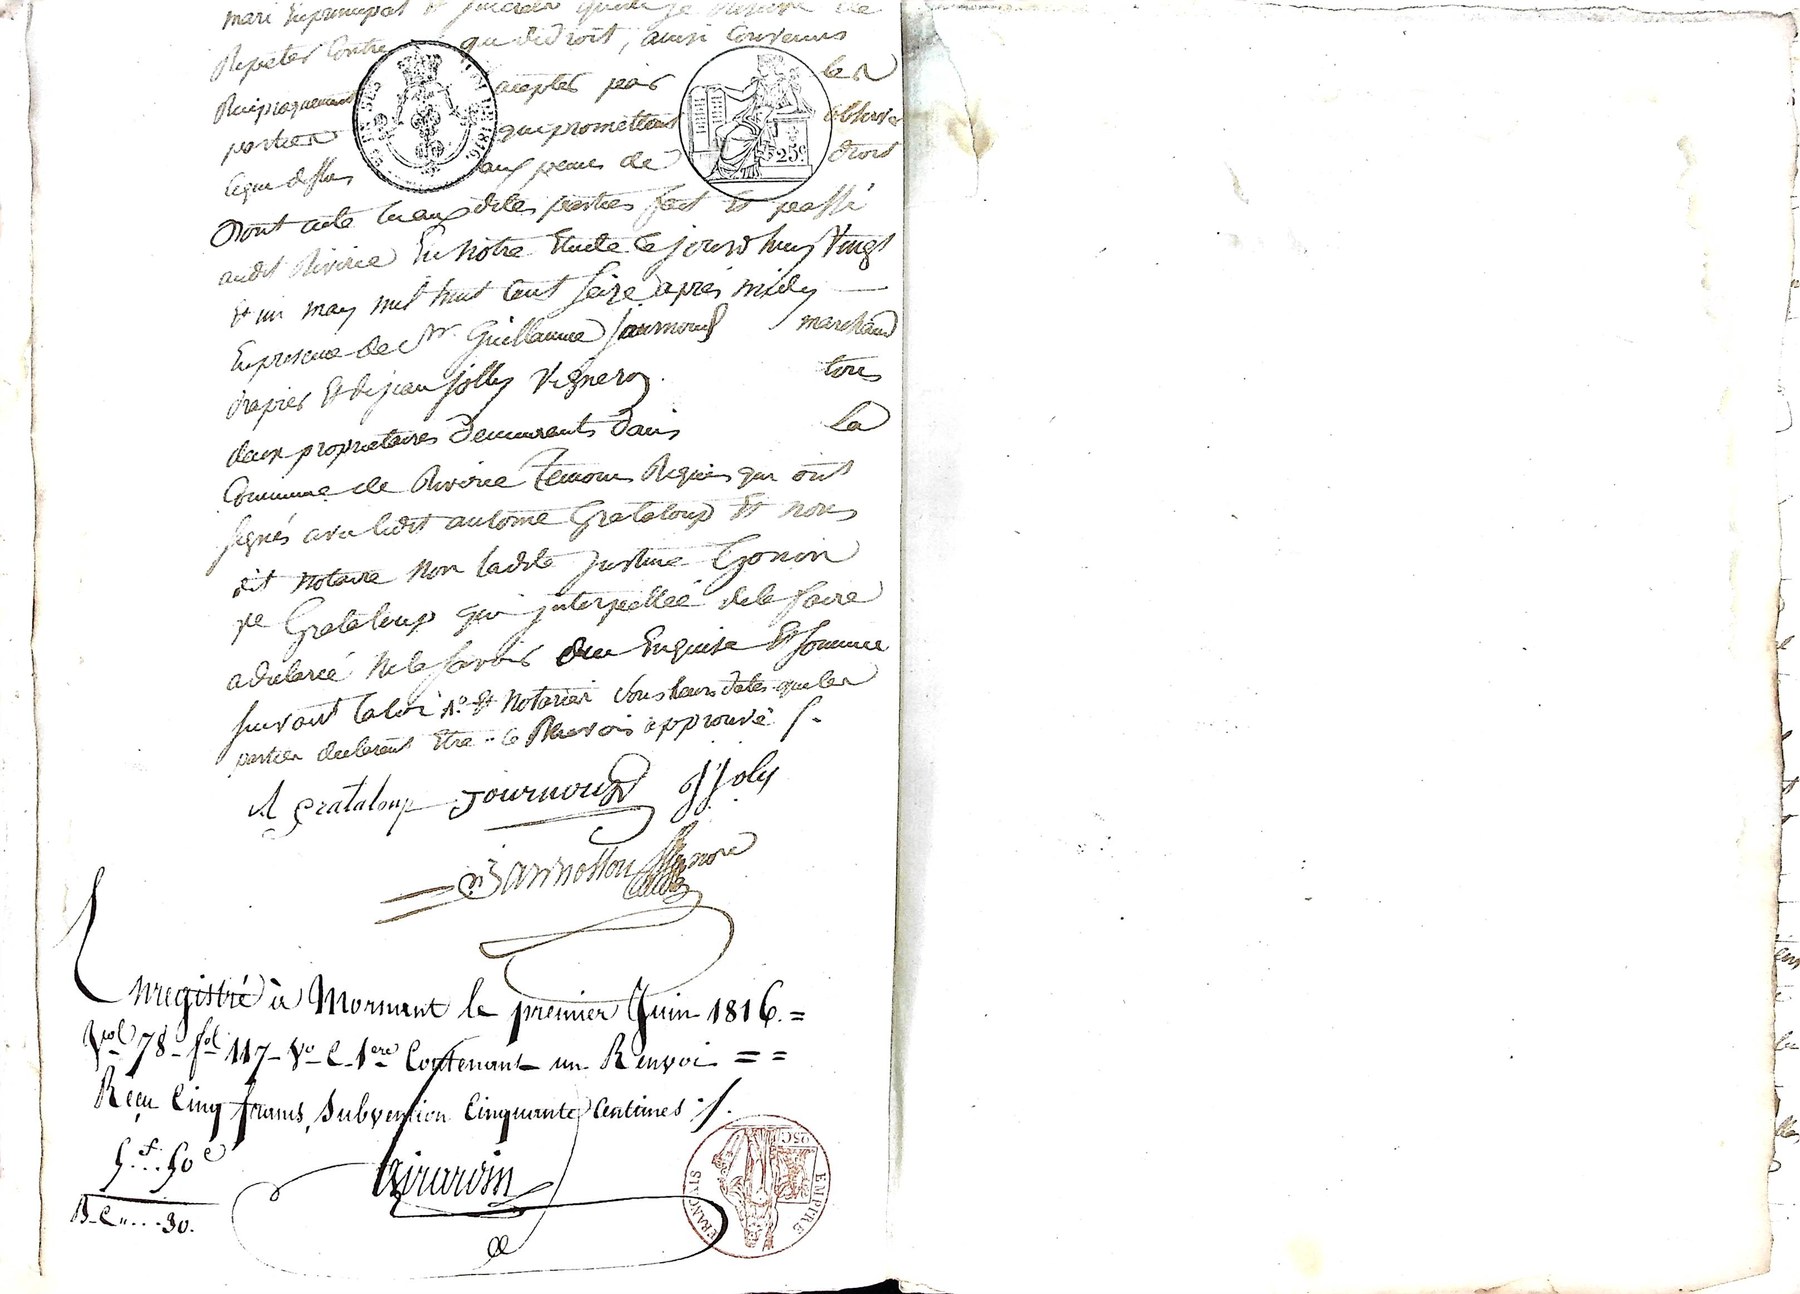 mari En principal et qu'elle se réserve de
Repeter Contre qui de droit, ainsi Convenus
Reciproquement acceptés par les
parties qui promettent observer
ce que dessus aux peines de droit
Dont acte lu aux dites parties fait et passé
audit Riverie En notre Etude Ce jourd'huy Vingt
et un may mil huit Cent Seize après midy —
En presence de Sr. Guillaume Journoud marchand
drapier Et de jean Jolly Vigneron tous
deux proprietaires demeurants dans La
Commune de Riverie Temoins Requis qui ont
Signés avec ledit antoine Grataloup et nous
dit notaire non ladite justine Gonin
fe Grataloup qui interpellée de le faire
a declaré Ne le Savoir de ce Enquise Et Sommée
suivant la loi Ro. Et Notariée Sous leurs dates que les
parties declarent Etre .. Le Renvois approuvé /.
A grataloup Journoud J Joly
Bannossou nore
Enregistré à Mornant le premier Juin 1816. =
Vol 78 - fol 117 - Vo - C. 1ere Contenant un Renvoi = =
Reçu Cinq francs, Subvention Cinquante Centimes ./.
5.f..50c
R. C ".. . 30.
Girardin
25c
EMPIRE
FRANÇAIS